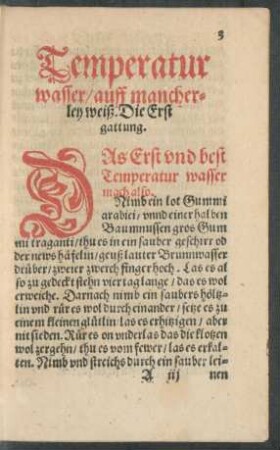 3
Temperatur
wasser/auff mancher-
ley weiß. Die Erst
gattung.
DAs Erst vnd best
Temperatur wasser
mach also.
Nimb ein lot Gummi
arabici/ vnnd einer halben
Baumnussen gros Gum
mi traganti/ thu es in ein sauber geschirr od
der news häfelin/ geuß lauter Brunnwasser
drüber/ zweier zwerch finger hoch. Las es al
so zu gedeckt stehn vier tag lange/ das es wol
erweiche. Darnach nimb ein saubers höltz-
lin vnd rür es wol durch einander/ setze es zu
einem kleinen glütlin las es erhitzigen/ aber
nit sieden. Rür es on vnderlas das die klotzen
wol zergehn/ thu es vom fewer/ las es erkal-
ten. Nimb vnd streichs durch ein sauber lei-
A iij nen